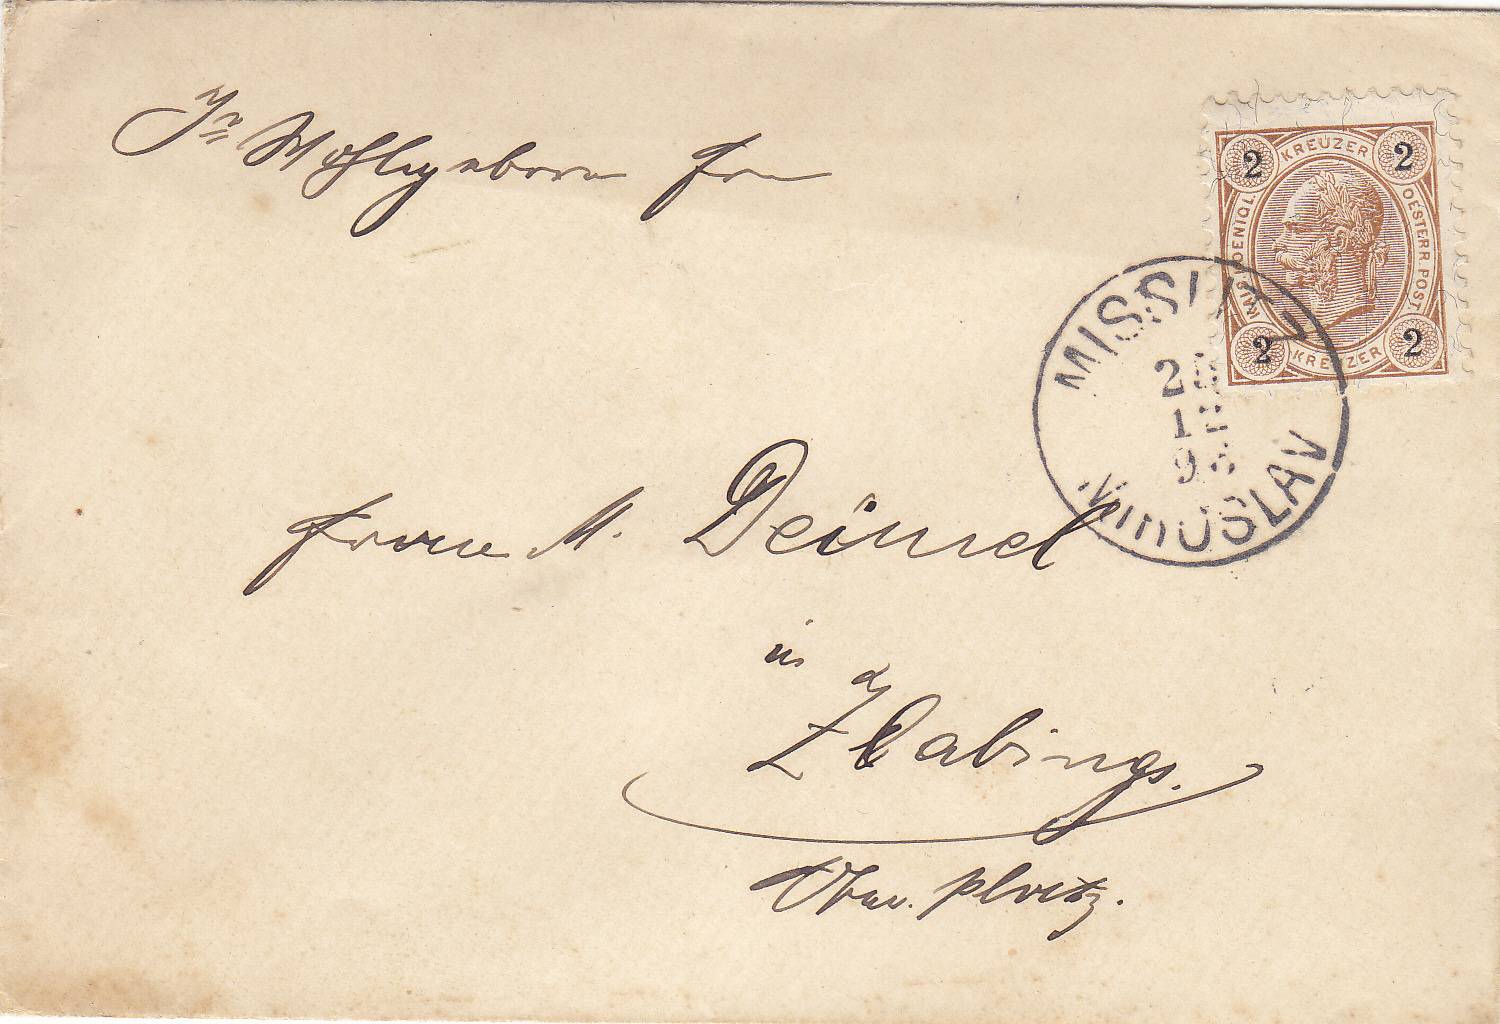 Ihr Wohlgeboren Fr
KREUZER
2 2
KAIS. KOENIGL. OESTERR. POST.
2 2
KREUZER
MISSLITZ
12
MIROSLAV
Frau M. Deimel
in
Zlabings.
Ober. platz.